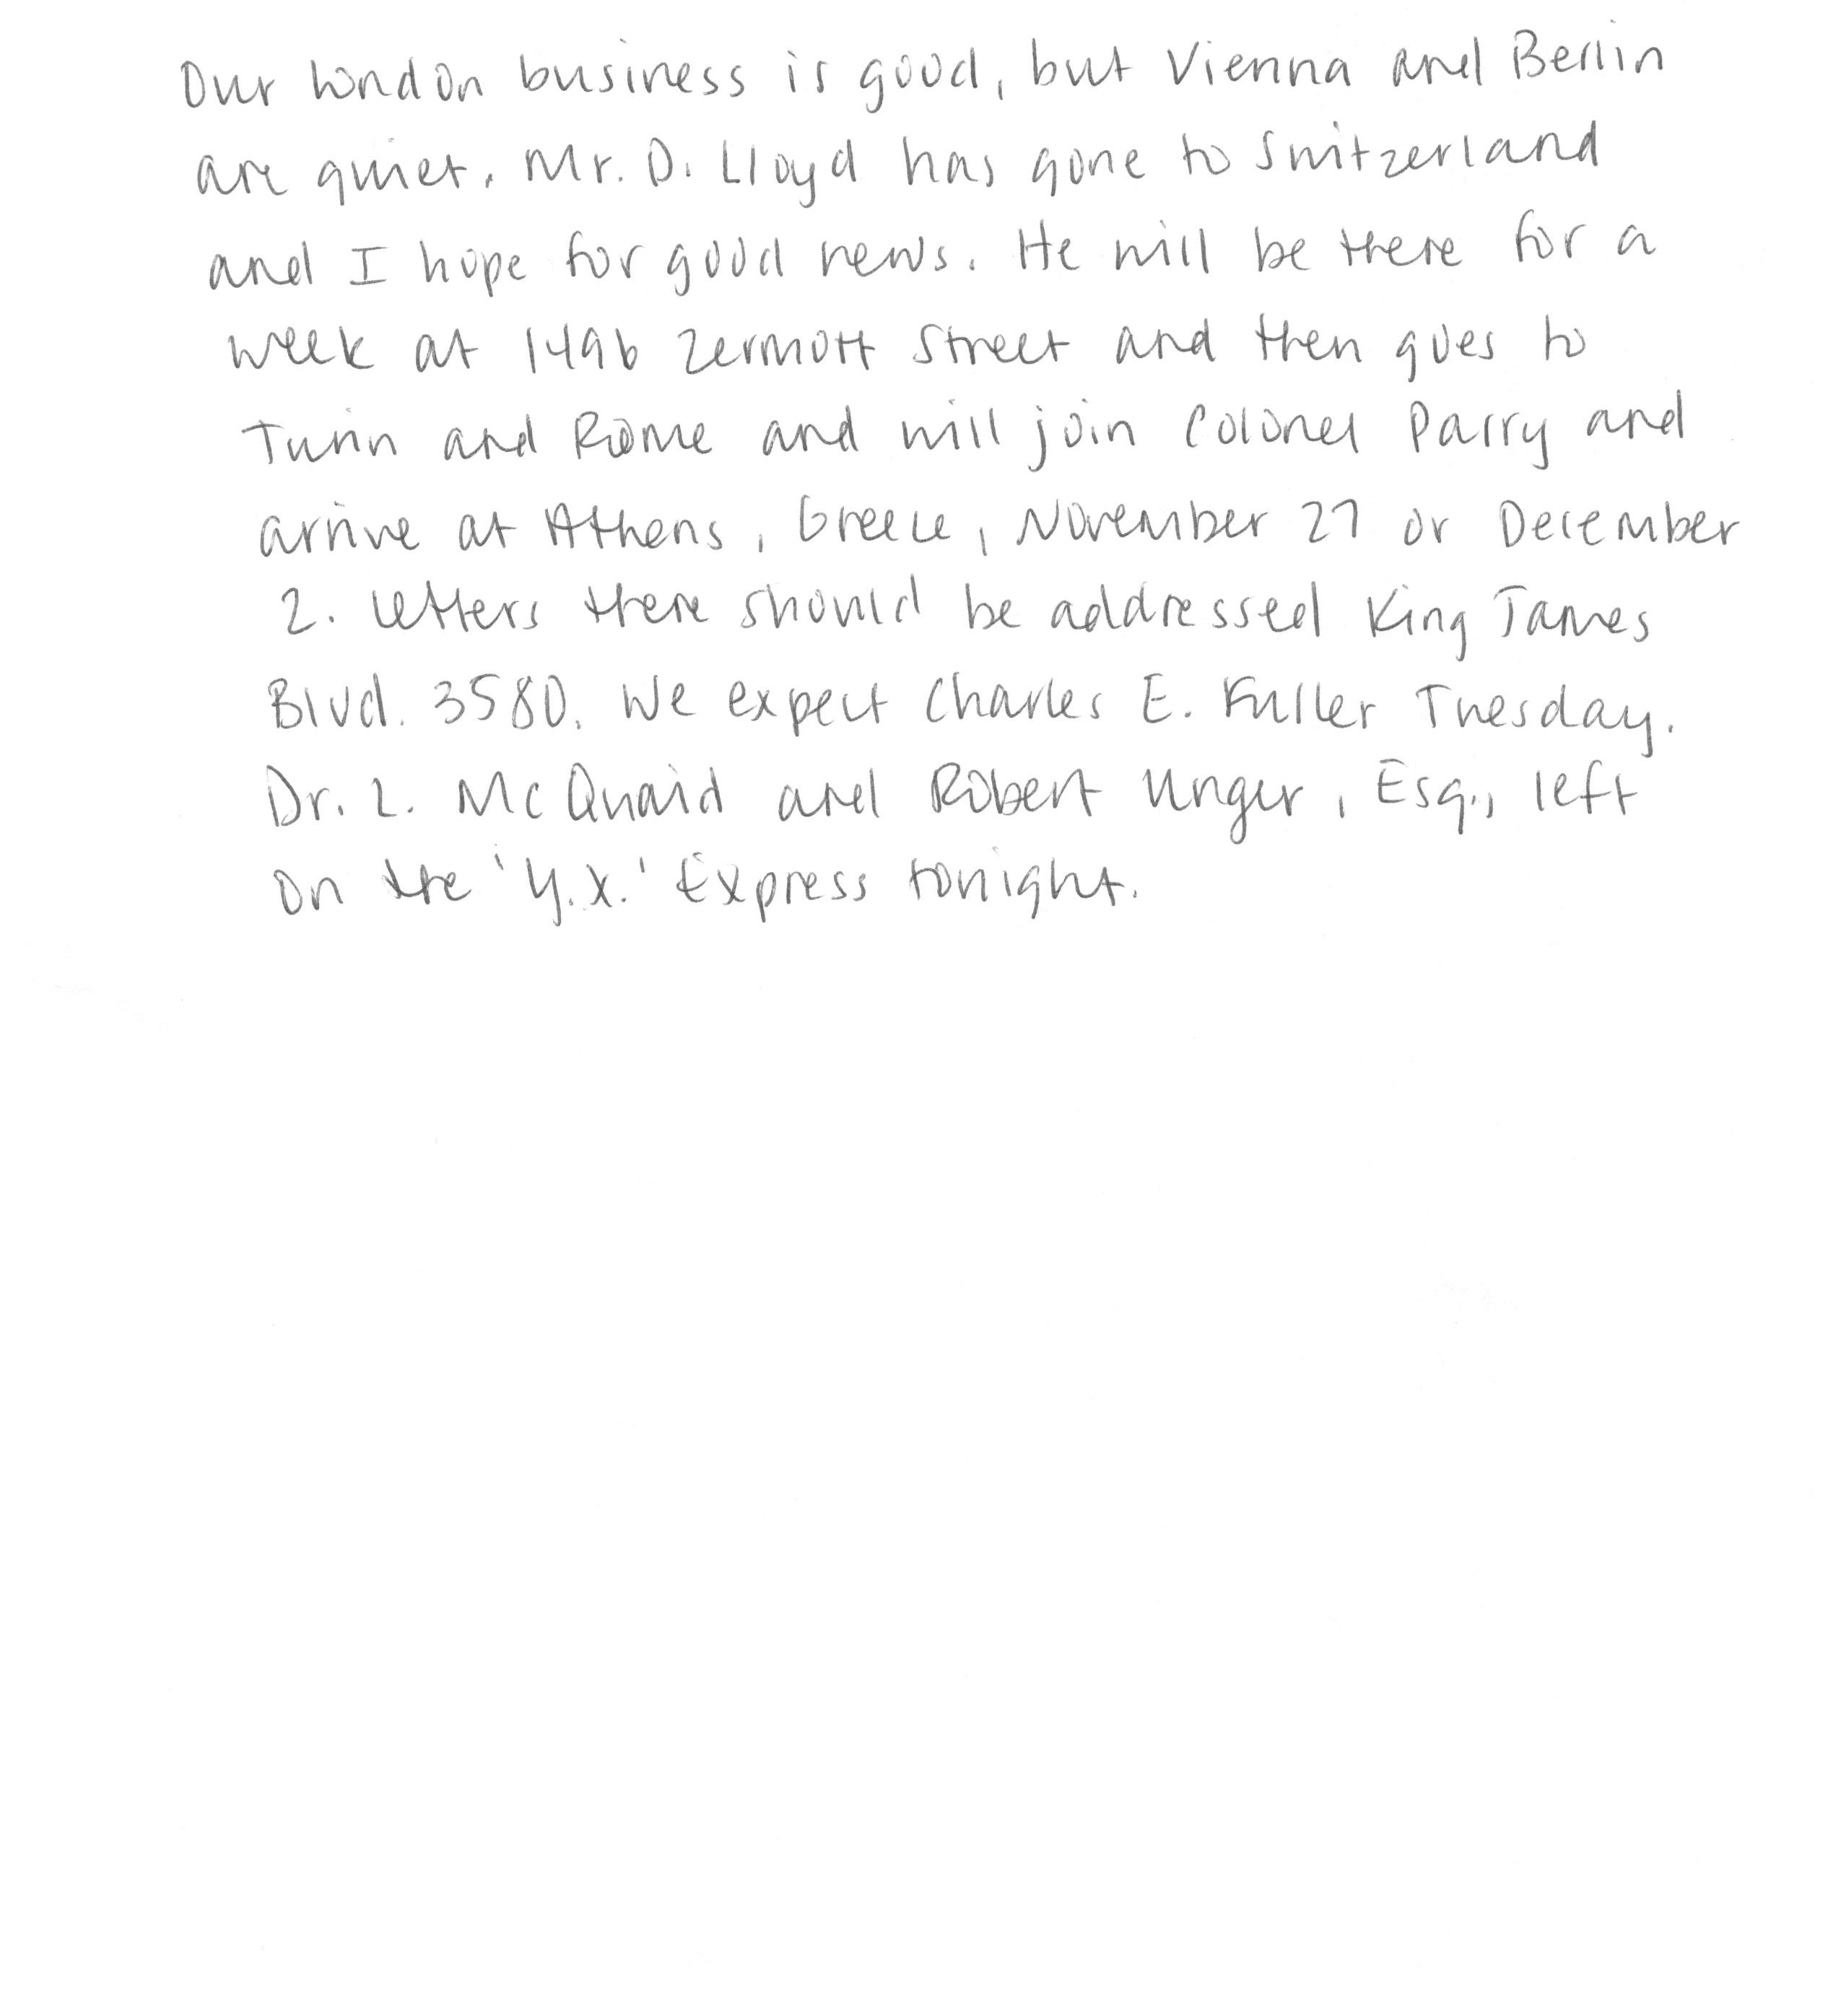 Our London business is good, but Vienna and Berlin
are quiet. Mr. D. Lloyd has gone to Switzerland
and I hope for good news. He will be there for a
week at 1496 Zermott Street and then goes to
Turin and Rome and will join Colonel Parry and
arrive at Athens, Greece, November 27 or December
2. Letters there should be addressed King James
Blvd. 3580. We expect Charles E. Fuller Tuesday.
Dr. L. McQuaid and Robert Unger, Esq., left
on the 'Y.X.' Express tonight.